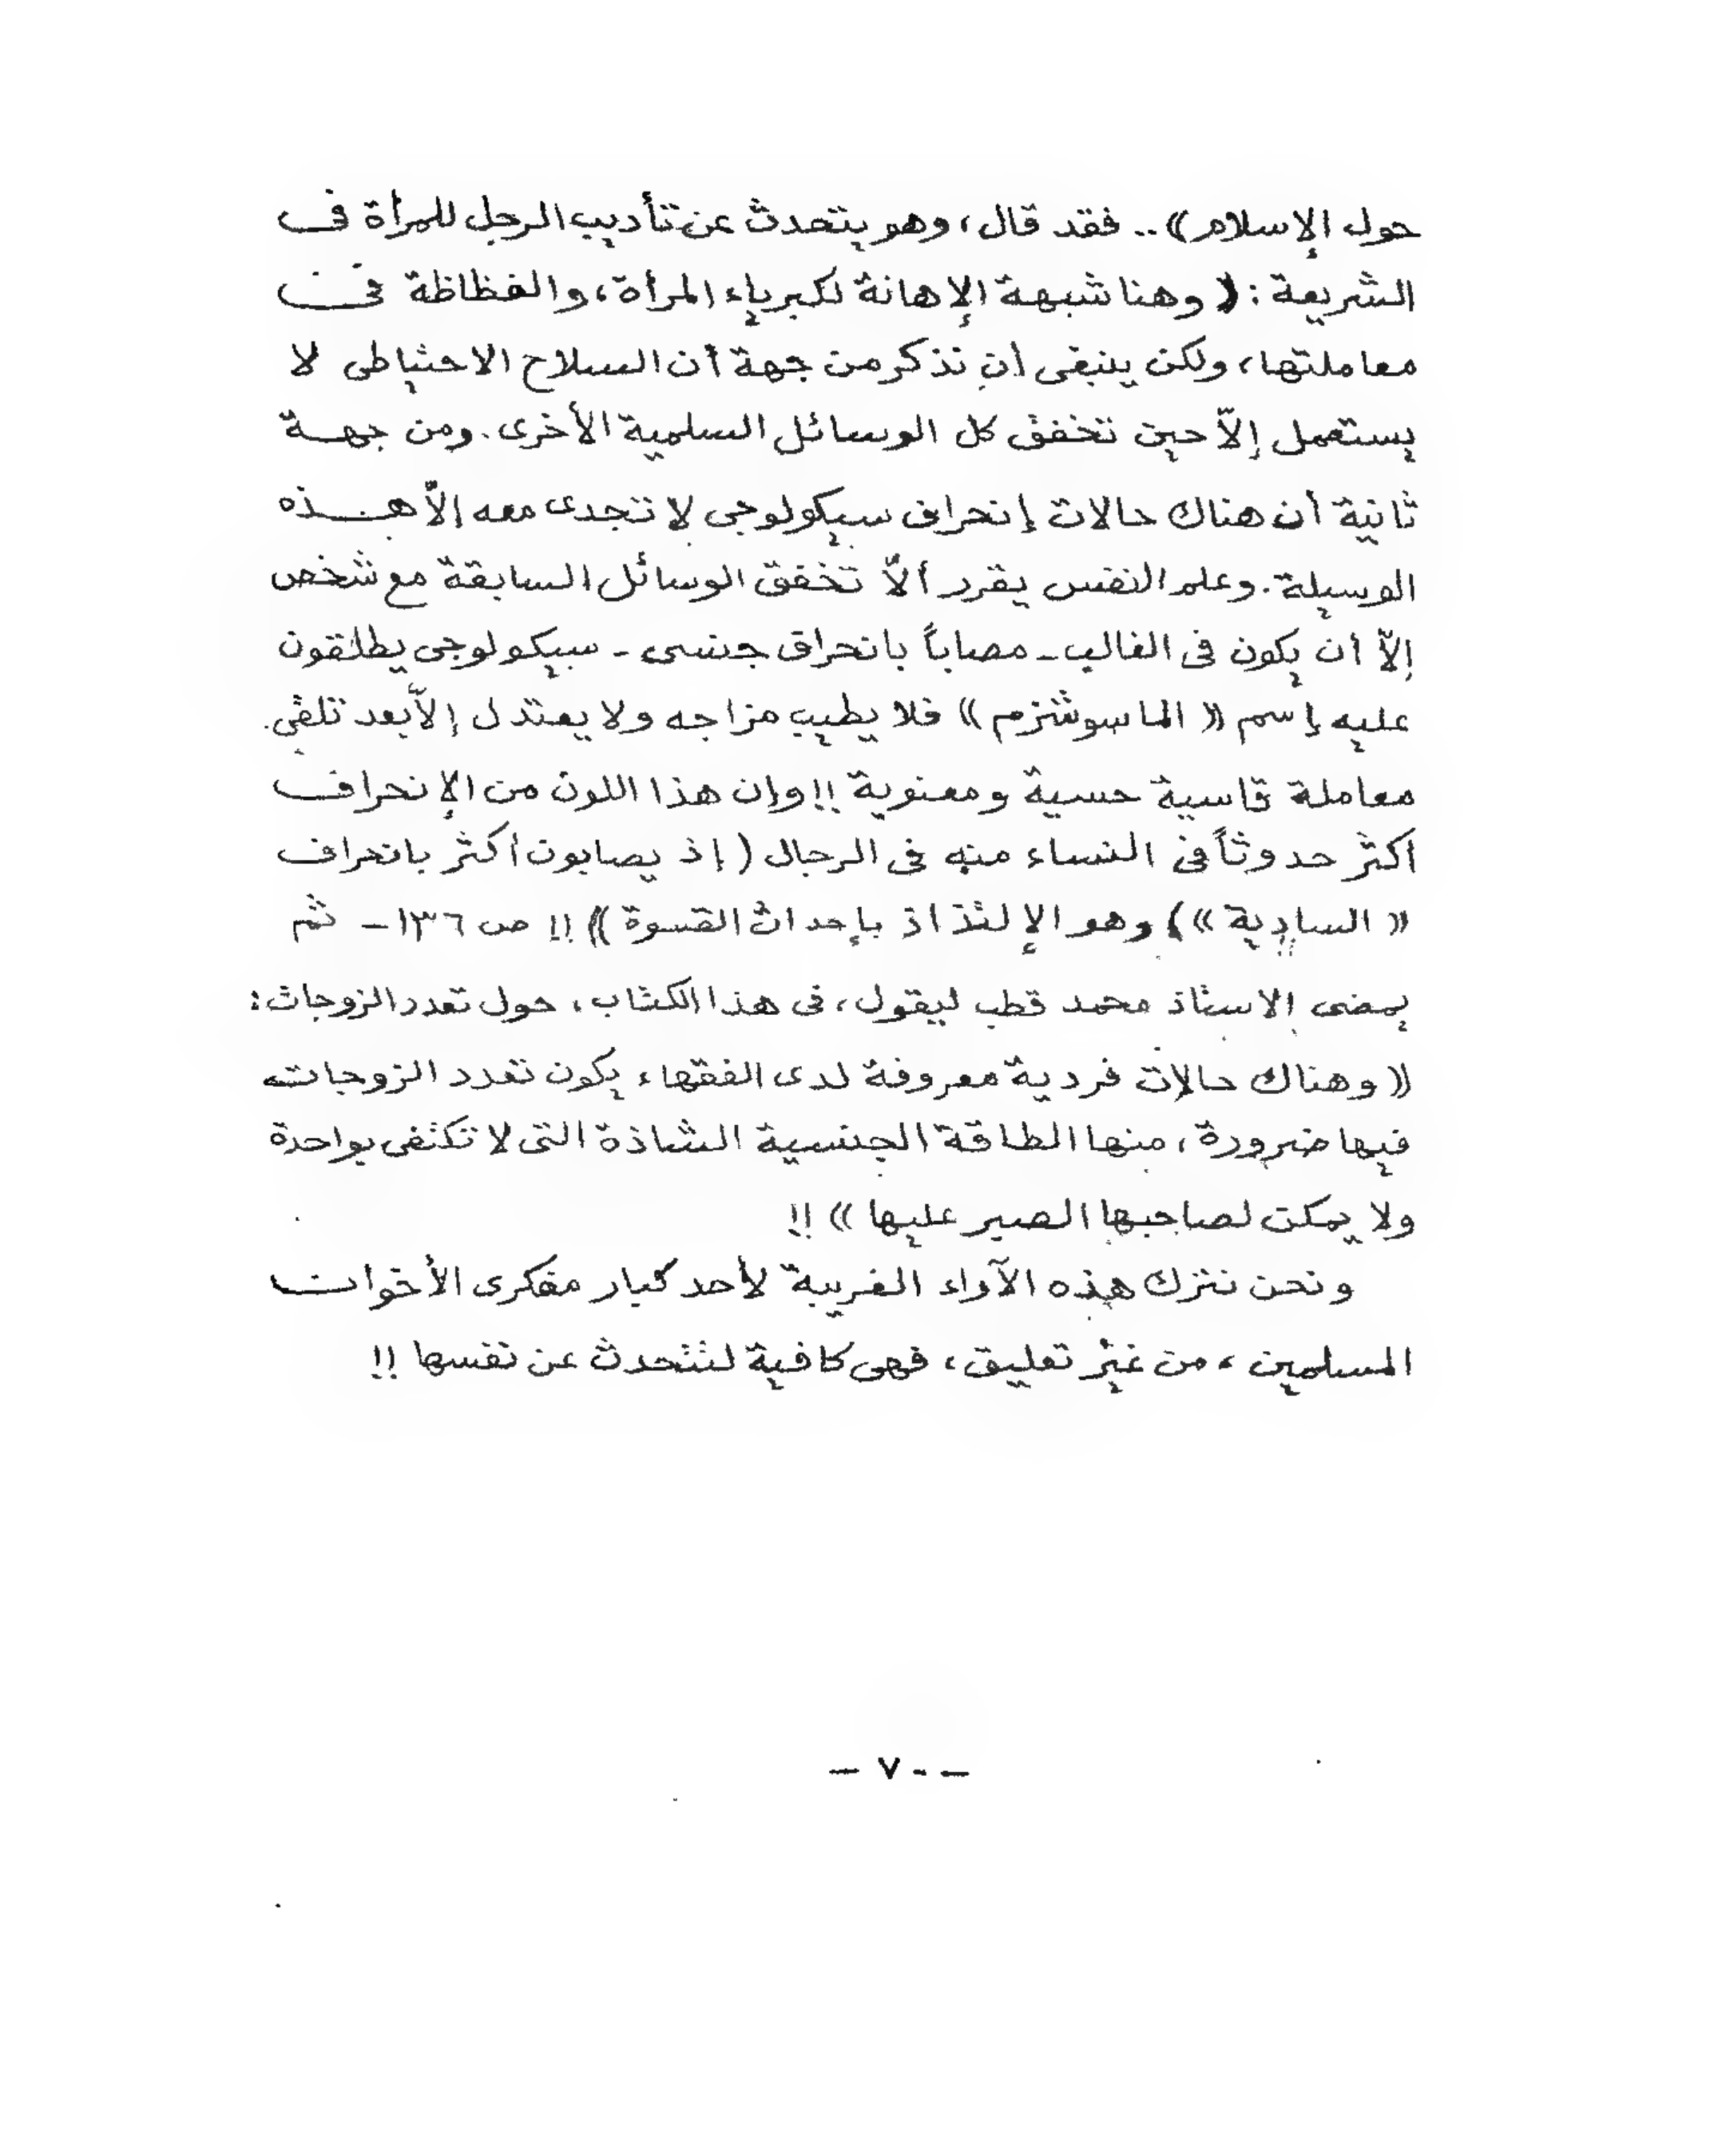 حول الإسلام)) .. فقد قال، وهو يتحدث عن تأديب الرجل للمرأة فى
الشريعة : (( وهنا شبهة الإهانة لكبرياء المرأة، والفظاظة فى
معاملتها، ولكن ينبغى أن نذكر من جهة أن السلاح الاحتياطى لا
يستعمل إلاّ حين تخفق كل الوسائل السلمية الأخرى. ومن جهة
ثانية أن هناك حالات إنحراف سيكولوجى لا تجدى معه إلاّ هذه
الوسيلة. وعلم النفس يقرر ألاّ تخفق الوسائل السابقة مع شخص
إلاّ أن يكون فى الغالب - مصاباً بانحراف جنسى - سيكولوجى يطلقون
عليه إسم (( الماسوشزم )) فلا يطيب مزاجه ولا يعتدل إلاّ بعد تلقى
معاملة قاسية حسية ومعنوية !! وإن هذا اللون من الإنحراف
أكثر حدوثاً فى النساء منه فى الرجال ( إذ يصابون أكثر بانحراف
(( السادية )) ) وهو الإلتذاذ بإحداث القسوة )) !! ص ١٣٦ - ثم
يمضى الاستاذ محمد قطب ليقول، فى هذا الكتاب، حول تعدد الزوجات:
(( وهناك حالات فردية معروفة لدى الفقهاء يكون تعدد الزوجات
فيها ضرورة، منها الطاقة الجنسية الشاذة التى لا تكتفى بواحدة
ولا يمكن لصاحبها الصبر عليها )) !!
ونحن نترك هذه الآراء الغريبة لأحد كبار مفكرى الأخوان
المسلمين، من غير تعليق، فهى كافية لتتحدث عن نفسها !!
– ٧٠ –